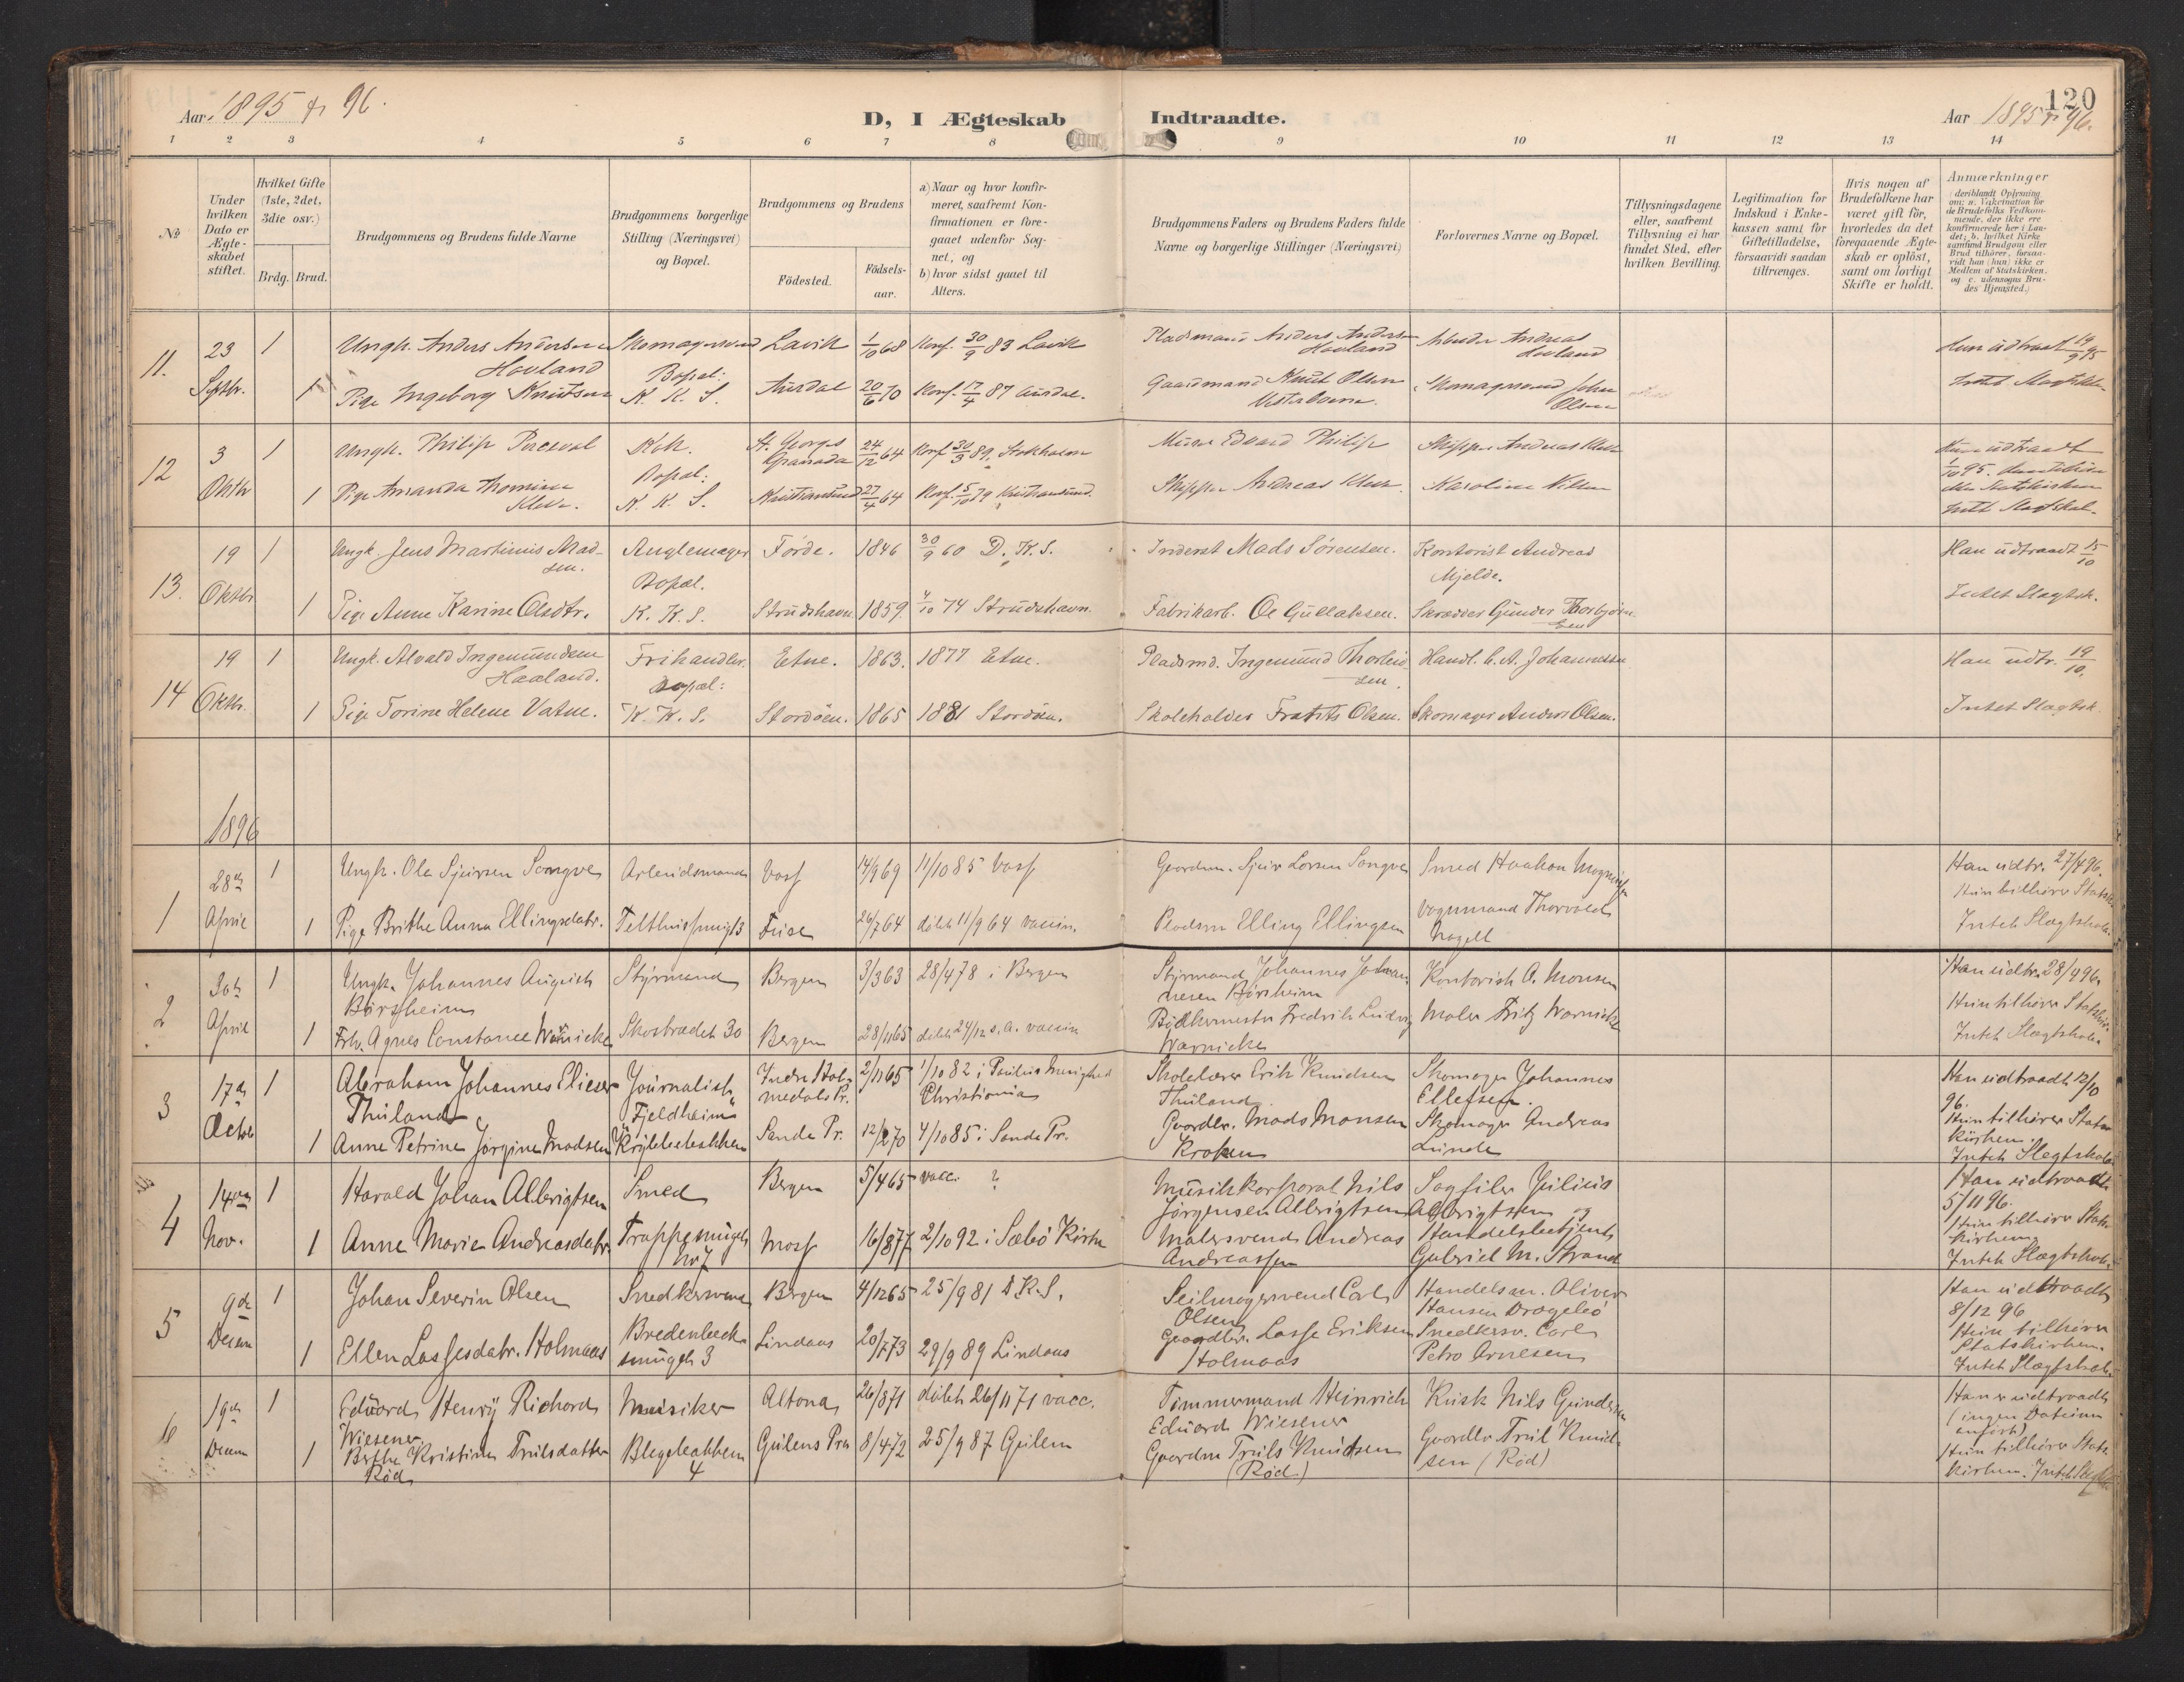 Aar 1895 & 96.
D, I Ægteskab
Indtraadte.
Aar 1895 & 96.
120
1 2 3 4 5 6 7 8 9 10 11 12 13 14
No
Under hvilken Dato er Ægteskabet stiftet.
Hvilket Gifte (1ste, 2det, 3die osv.)
Brdg. Brud.
Brudgommens og Brudens fulde Navne
Brudgommens borgerlige Stilling (Næringsvei) og Bopæl.
Brudgommens og Brudens
Födested.
Födsels-aar.
a) Naar og hvor konfirmeret, saafremt Konfirmationen er foregaaet udenfor Sognet, og
b) hvor sidst gaaet til Alters.
Brudgommens Faders og Brudens Faders fulde Navne og borgerlige Stillinger (Næringsvei)
Forlovernes Navne og Bopæl.
Tillysningsdagene eller, saafremt Tillysning ei har fundet Sted, efter hvilken Bevilling.
Legitimation for Indskud i Enkekassen samt for Giftetilladelse, forsaavidt saadan tiltrænges.
Hvis nogen af Brudefolkene har været gift för, hvorledes da det foregaaende Ægteskab er oplöst, samt om lovligt Skifte er holdt.
Anmærkninger
(deriblandt Oplysning om: a. Vakcination for de Brudefolks Vedkommende, der ikke ere konfirmerede her i Landet; b. hvilket Kirkesamfund Brudgom eller Brud tilhörer, forsaavidt han (hun) ikke er Medlem af Statskirken, og c. udensogns Brudes Hjemsted.)
11. 23 Septbr. 1 Ungk. Anders Andersen Hovland Skomagersvend Lavik 1/10 68 Konf. 30/9 83 Lavik Pladsmand Anders Andersen Hovland Arbeider Andreas Hovland Hun udtraadt 19/9 95
1 Pige Ingeborg Knutsen Bopæl: K. K. S. Aurdal 20/6 70 Konf. 17/4 87 Aurdal. Gaardmand Knut Olsen Skomagersvend John Olsen Intet Slægtsk.
12 3 Oktbr 1 Ungk. Philip Perceval Kok St. Georges Granada 24/12 64 Konf 30/3 89. Stokholm Murer Edvard Philip Skipper Andreas Hun udtraadt 1/10 95.
1 Pige Amanda Thomine Bopæl: K. K. S. Kristiansund 27/4 64 Konf. 5/10 79 Kristiansund. Skipper Andreas Karoline Nilsen Intet Slægtskab.
13. 19 Oktbr 1 Ungk. Jens Martinius Madsen. Anglemager Förde. 1846 30/9 60 D. K. S. Inderst Mads Sørensen. Kontorist Andreas Mjelde. Han udtraadt 15/10
1 Pige Anne Karine Olsdtr. Bopæl. K. K. S. Strudshavn 1859. 4/10 74 Strudshavn. Fabrikarb. Ole Gullaksen. Skrædder Gunder Thorbjørnsen Intet Slægtsk.
14 19 Oktbr. 1 Ungk. Alvald Ingemundsen Haaland. Frihandler. Etne. 1863. 1877 Etne. Pladsmd. Ingemund Thorleifsen. Handl. C. A. Johannesen Han udtr. 19/10.
1 Pige Torine Helene Vatne. Bopæl: K. K. S. Stordöen. 1865 1881 Stordöen. Skoleholder Olsen. Skomager Anders Olsen. Intet Slægtsk.
1896
1 28de April 1 Ungk. Ole Sjursen Songve Arbeidsmand Voss 14/9 69 11/10 85 Voss Gaardm. Sjur Larsen Songve Smed Haakon Magnussen Han udtr. 27/4 96.
1 Pige Brithe Anna Ellingsdatr. Telthussmug 3 26/7 64 döbt 11/9 64 vaccin. Pladsm Elling Ellingsen Vognmand Thorvald Nagell Hun tilhörer Statsk. Intet Slægtskab.
2 30te April 1 Ungk. Johannes August Börsheim Styrmand Bergen 3/3 63 28/4 78 i Bergen Styrmand Johannes Johannesen Börsheim Kontorist A. Monsen Han udtr. 28/4 96.
1 Frk. Agnes Constance Warnicke Skostrædet 30 Bergen 28/11 65 döbt 24/12 s. a. vaccin Bödkermester Fredrik Ludvig Warnicke Maler Fritz Warnicke Hun tilhörer Statskir. Intet Slægtskab.
3 17de Octob 1 Abraham Johannes Elieser Thuland Journalist Indre Holmedals Pr. 2/11 65 1/10 82 i Paulus Menighed Christiania Skolelærer Erik Knudsen Thuland. Skomager Johannes Ellefsen. Han udtraadt 12/10 96.
1 Anne Petrine Jørgine Madsen "Fjeldheim" Krybbebakken Sande Pr. 12/2 70 4/10 85 i Sande Pr. Gaardbr. Mads Monsen Kroken Skomager Andreas Lunde Hun tilhörer Statskirken. Intet Slægtskab.
4 14de Nov. 1 Harald Johan Albrigtsen Smed Bergen 5/4 65 vacc. ? Musikkorporal Nils Jørgensen Albrigtsen Sagfiler Julius Albrigtsen og Han udtraadt 5/11 96.
1 Anne Marie Andreasdatr Trappesmuget No 7 Moss 16/8 77 2/10 92 i Sæbö Kirke Malersvend Andreas Andreassen Handelsbetjent Gabriel M. Strand Hun tilhörer Statskirken. Intet Slægtskab.
5 9de Decem 1 Johan Severin Olsen Snedkersvend Bergen 4/12 65 25/9 81 D. K. S. Seilmagersvend Carl Olsen Handelsm. Oliver Hansen Dragebö Han udtraadt 8/12 96
1 Ellen Lassesdatr. Holmaas Bredenbecksmuget 3 Lindaas 20/7 73 29/9 89 Lindaas Gaardbr. Lasse Eriksen Holmaas Snedkersv. Carl Petro Arnesen Hun tilhörer Statskirken. Intet Slægtskab.
6 19de Decem 1 Eduard Henry Richard Wiesener Musiker Altona 26/8 71 döbt 26/11 71 vacc. Tömmermand Heinrich Eduard Wiesener Kusk Nils Gundersen Han er udtraadt (ingen Datum anfört)
1 Berthe Kristine Trulsdatter Röd Blegebakken 4 Gulens Pr. 8/4 72 25/9 87 Gulen Gaardm Truls Knudsen (Röd) Gaardbr Trul Knudsen (Röd) Hun tilhörer Statskirken. Intet Slægtsk.